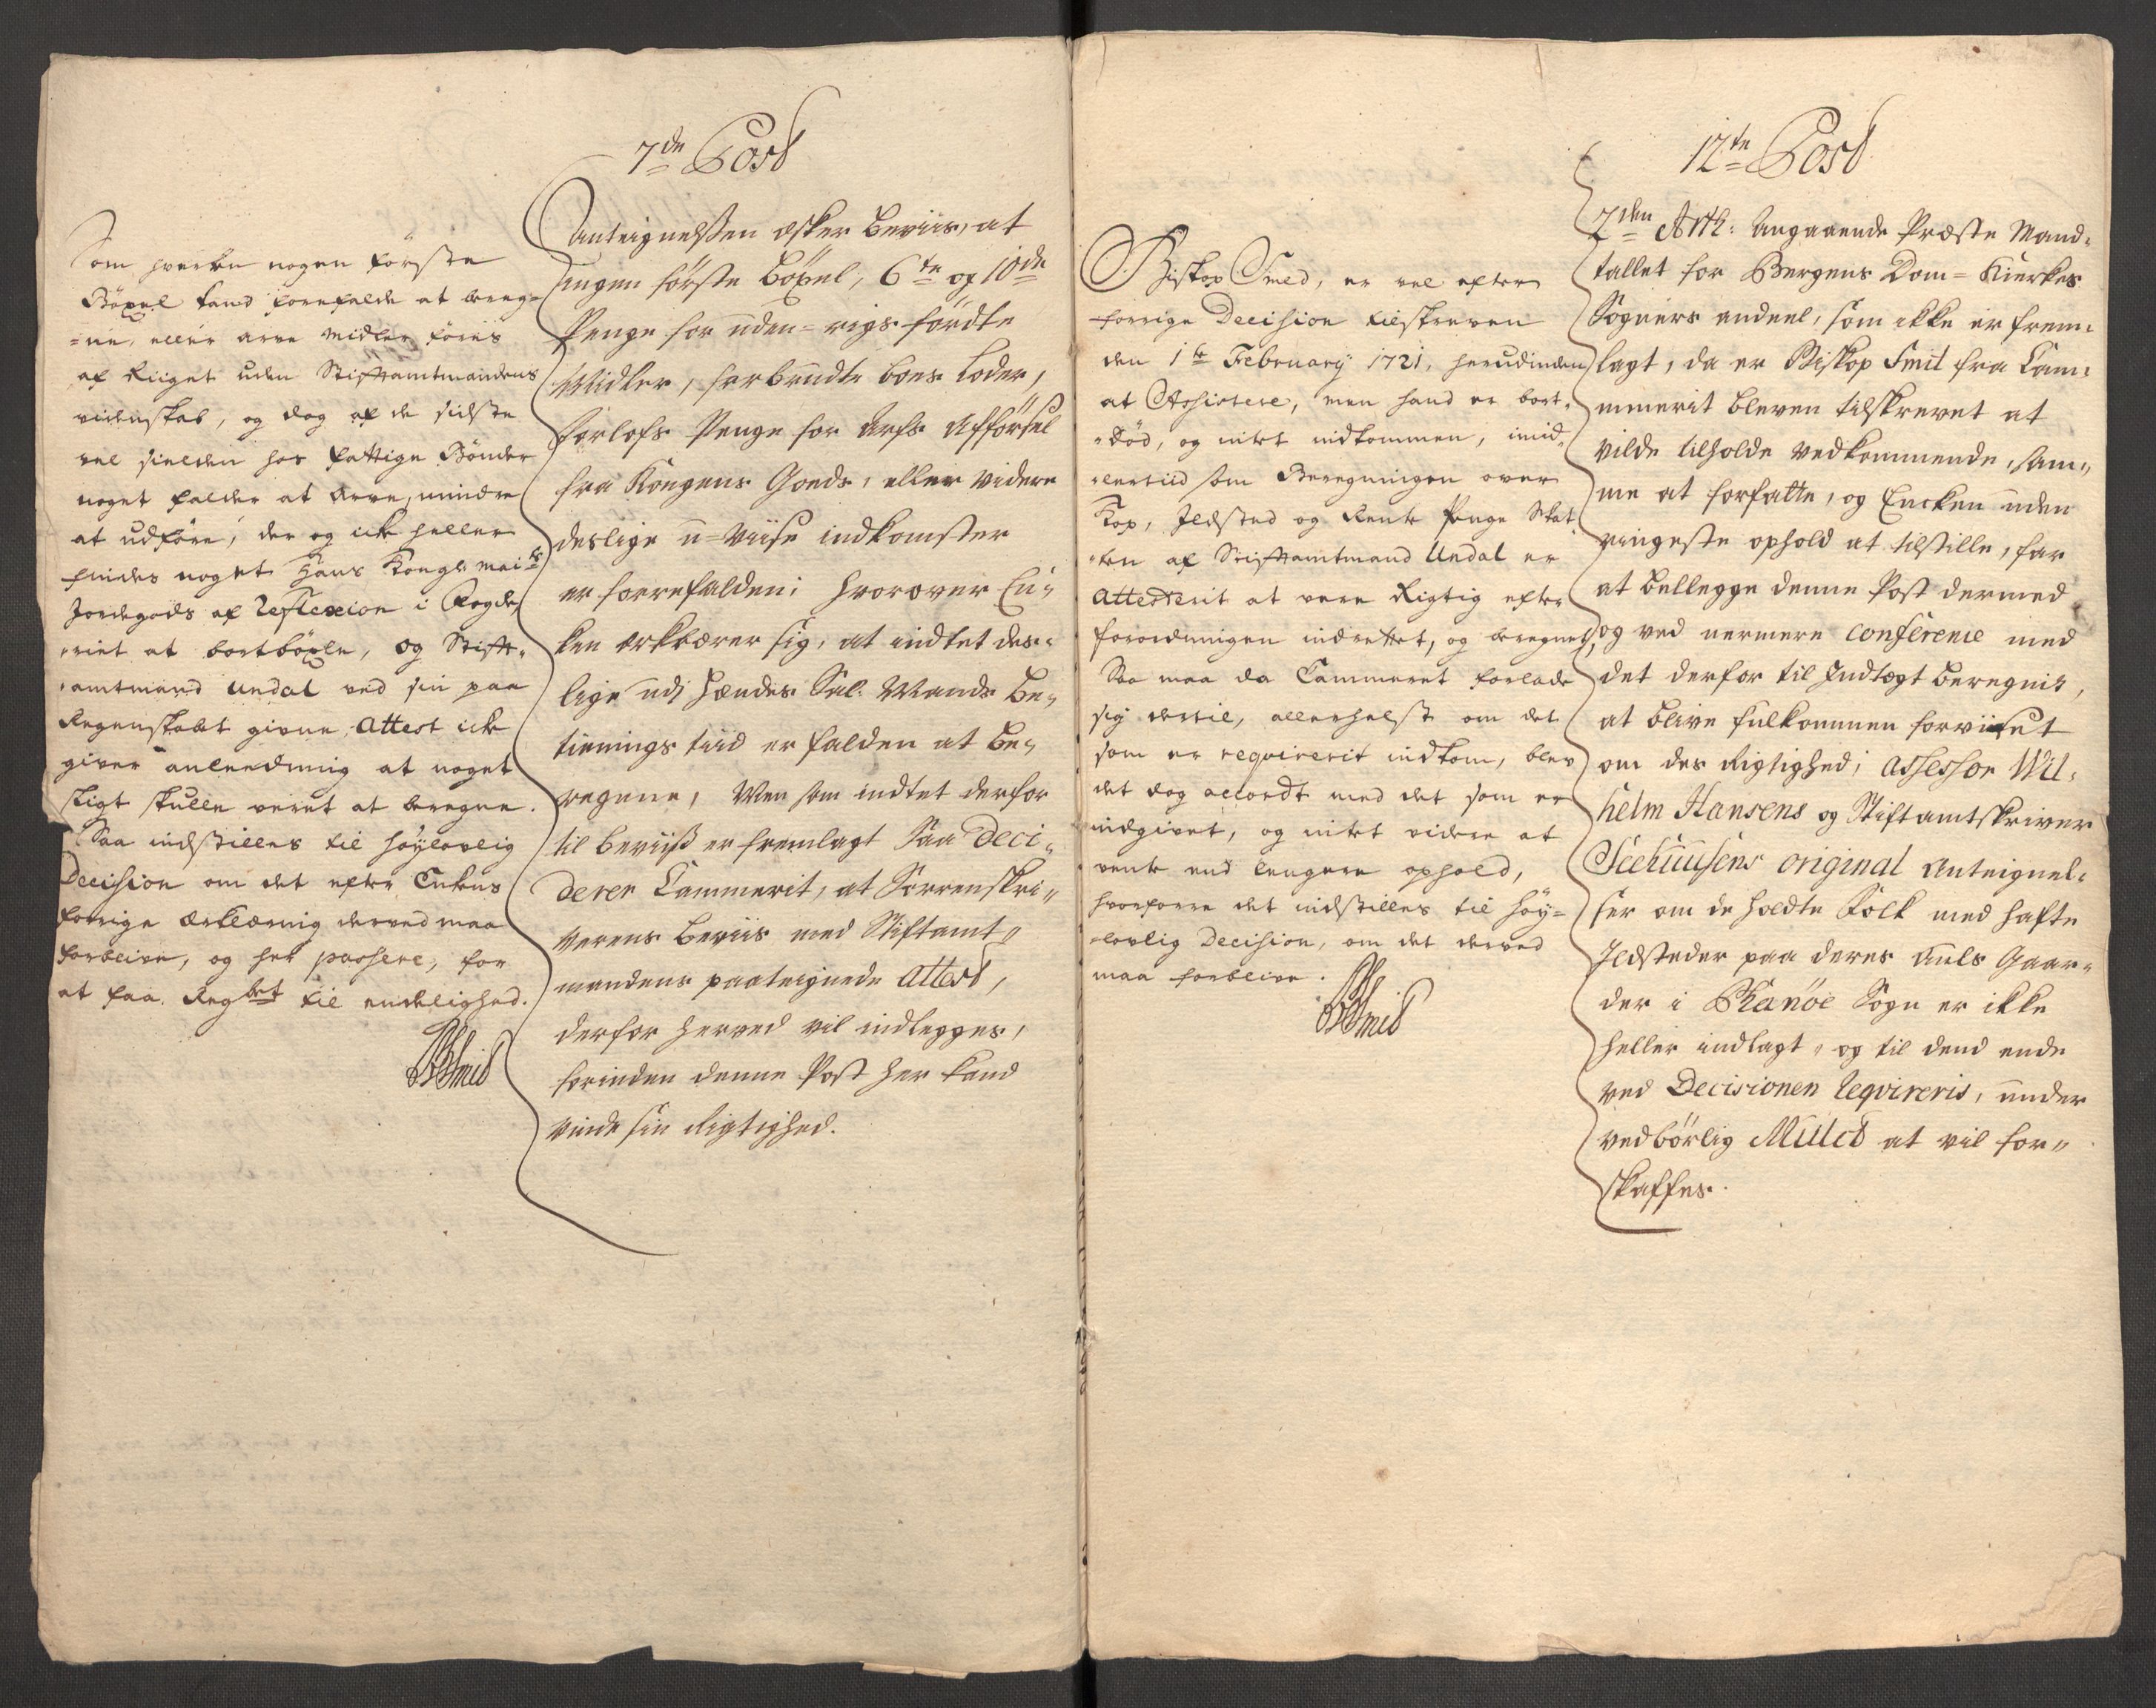 7de Post
Som hverken nogen förste
Böxel kand forefalde at bereg=
=ne, eller arve midler föres
af Riiget uden Stiftamtmandens
videnskab, og dog af de sidste
vel sielden hos fattige Bönder
noget falder at arve, mindre
at udföre, der og icke heller
findes noget Hans Kongl: mai:ts
Jordegods af reflexion i Fogde,
,riet at bortböxle, og Stift,
,amtmand Undal ved sin paa
Regenskabet givne Attest icke
giver anleedning at noget
sligt skulle veret at beregne.
Saa indstilles til höylovlig
Decision om det efter Enkens
forrige erklæring derved maa
forblive, og her passere, for
at faa Regbet til endelighed.
BSmid
Anteignelssen æsker beviis, at
ingen förste böxel, 6te og 10de
Penge for uden=rigs fördte
Midler, forbrudte boes loder,
forlofs Penge for Arfs Afförsel
fra Kongens Goeds, eller videre
deslige u=visse indkomster
er forrefalden; hvorover En,
ken erklærer sig, at indtet des,
lige udj hendes Sal. Mands be,
tienings tiid er falden at be,
regne, Men som indtet derfor
til beviiß er fremlagt Saa Deci,
derer Cammerit, at Sorrenskri,
verens beviis med Stiftamt,
mandens paateignede Attest,
derfor herved vil indlegges,
forinden denne Post her kand
vinde sin Rigtighed.
12te Post
Biskop Smed, er vel efter
forrige Decision tilskreven
den 1te February 1721, herudinden
at Assistere, men hand er bort,
,död, og intet indkommen, imid,
,lertiid som Beregningen over
Kop, Ildsted og Rente Penge Skat
,ten af Stiftamtmand Undal er
Attesterit at vere Rigtig efter
forordningen indrettet, og beregnet,
Saa maa da Cammeret forlade
sig dertil, allerhelst om det
som er requirerit indkom, blev
det dog accordt med det som er
indgivet, og intet videre at
vente end lengere ophold,
hvorforre det indstilles til höy=
=lovlig Decision, om det derved
maa forblive.
BSmid
7den Artk: Angaaende Præste Mand,
tallet for Bergens Dom=Kierkes
Sogners andeel, som ikke er frem,
lagt, da er Biskop Smit fra Cam,
merit bleven tilskrevet at
vilde tilholde vedkommende, sam,
me at forfatte, og Encken uden
ringeste ophold at tilstille, for
at bellegge denne Post dermed
og ved nermere conference med
det derfor til Indtægt beregnit,
at blive fulkommen forviset
om des Rigtighed; Assessor Wil,
helm Hansens og Stiftamtskriver
Seehuusens original Anteignel,
ser om de holdte Folk med hafte
Ildsteder paa deres auls Gaar,
der i Skanöe Sogn er ikke
heller indlagt, og til dend ende
ved Decisionen reqvireris, under
vedbörlig Mulct at vil for,
skaffes.